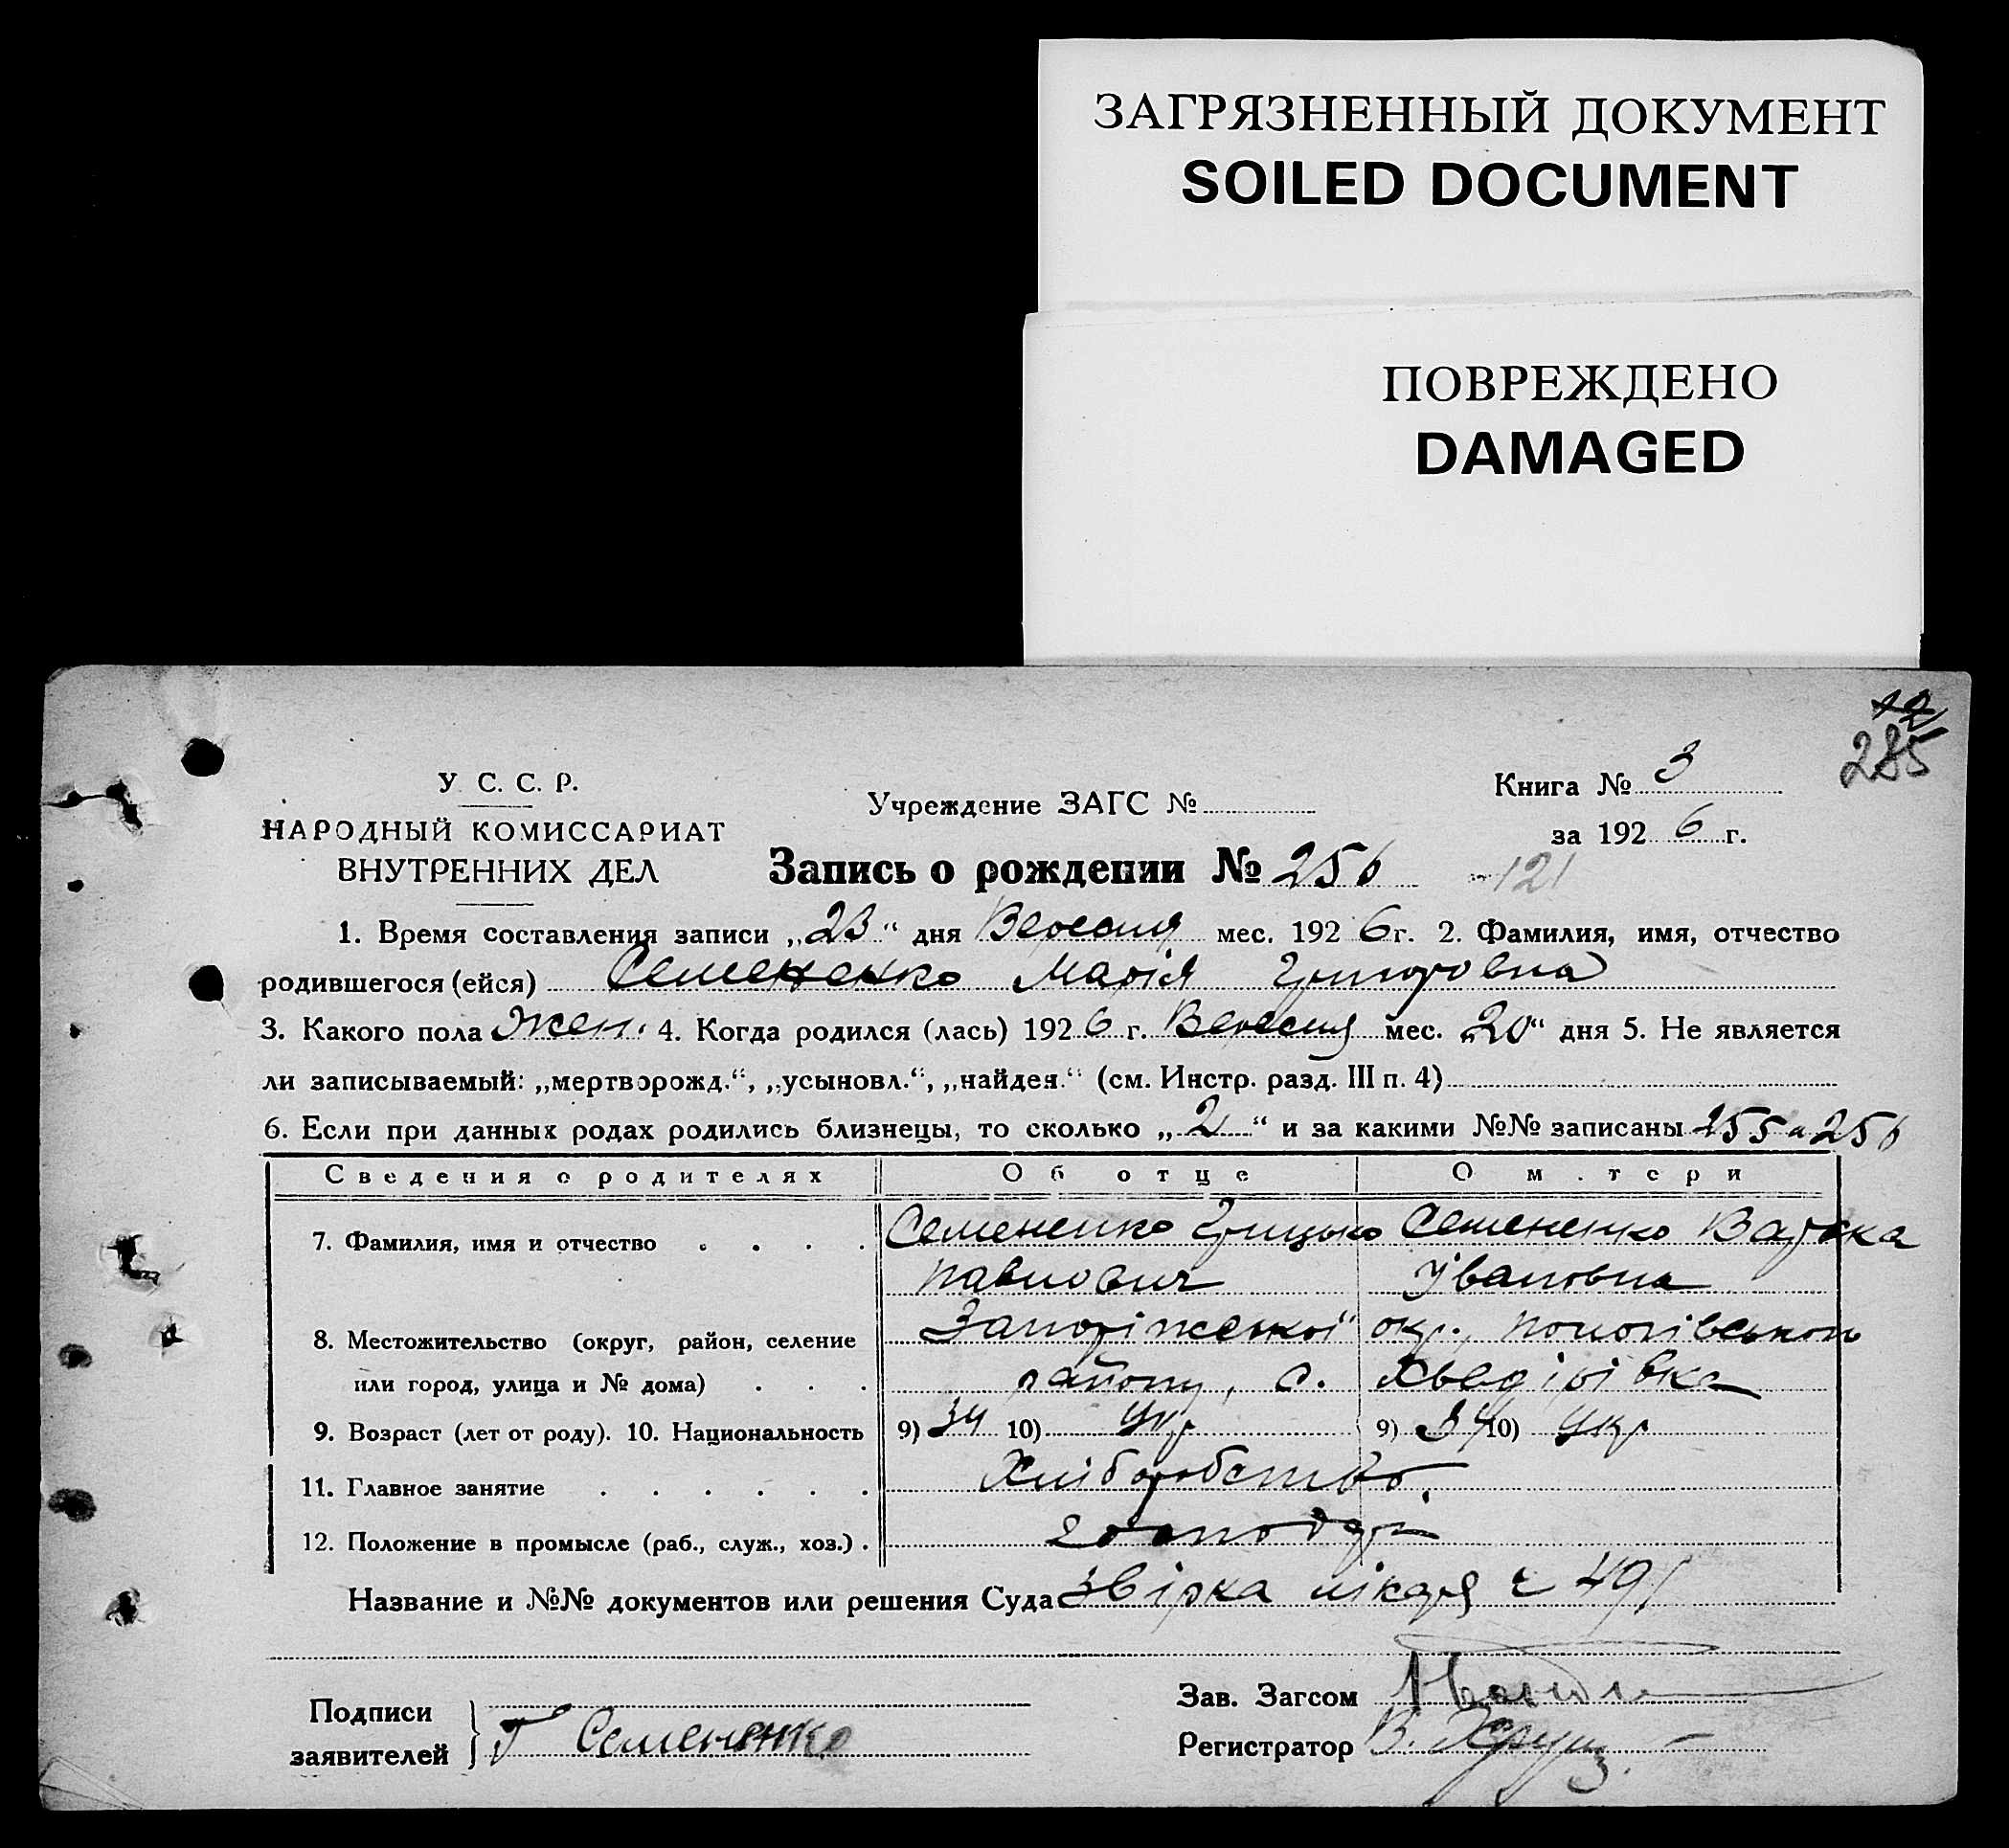 ЗАГРЯЗНЕННЫЙ ДОКУМЕНТ
SOILED DOCUMENT
ПОВРЕЖДЕНО
DAMAGED
285
У. С. С. Р.
НАРОДНЫЙ КОМИССАРИАТ
ВНУТРЕННИХ ДЕЛ
Учреждение ЗАГС №
Книга № 3
за 1926 г.
Запись о рождении № 256 121
1. Время составления записи „23“ дня Вересня мес. 1926 г. 2. Фамилия, имя, отчество
родившегося (ейся) Семененко Марія Григоровна
3. Какого пола жен. 4. Когда родился (лась) 1926 г. Вересня мес. „20“ дня 5. Не является
ли записываемый: „мертворожд.“, „усыновл.“, „найден.“ (см. Инстр. разд. III п. 4)
6. Если при данных родах родились близнецы, то сколько „2“ и за какими №№ записаны 255 и 256
Сведения о родителях Об отце О м.тери
7. Фамилия, имя и отчество Семененко Грицько Семененко Варька
Павлович Івановна
8. Местожительство (округ, район, селение Запоріжської окр., Пологівського
или город, улица и № дома) району, с. Хведірівка
9. Возраст (лет от роду). 10. Национальность 9) 34 10) Укр 9) 34 10) Укр
11. Главное занятие Хліборобство.
12. Положение в промысле (раб., служ., хоз.) господарі
Название и №№ документов или решения Суда звірка лікаря ч 491
Подписи
заявителей Г Семененко
Зав. Загсом
Регистратор В.